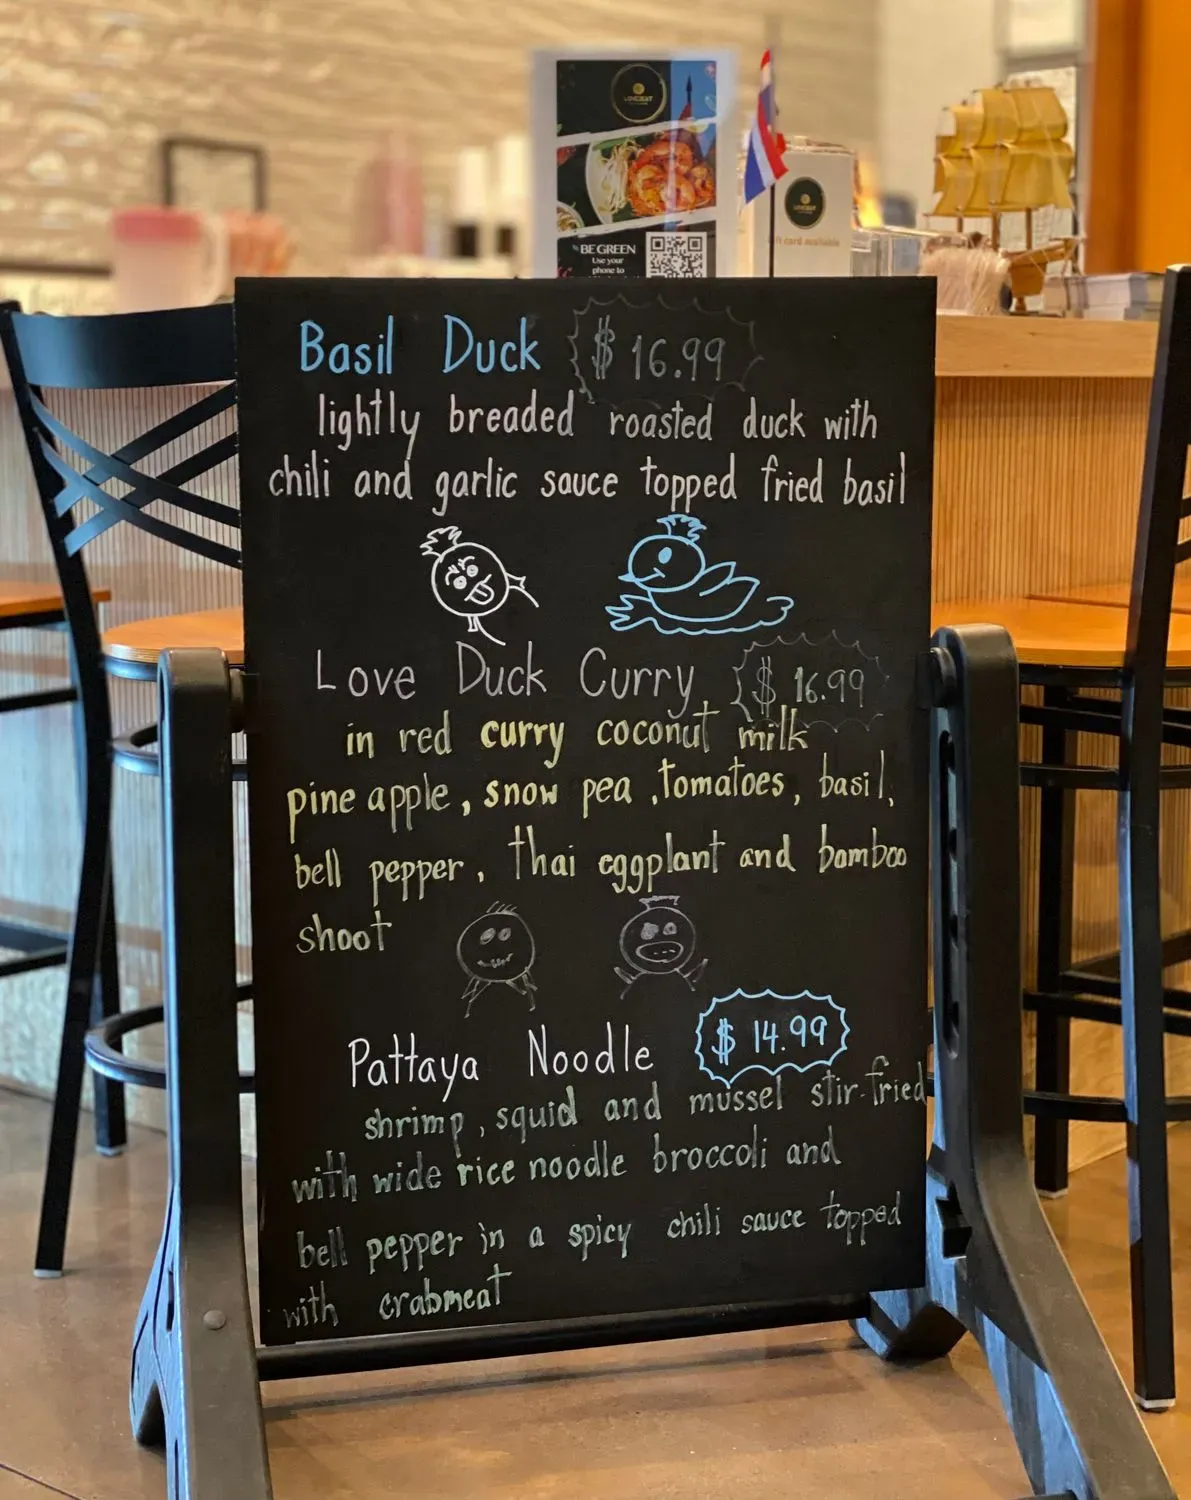 LOVE2EAT
BE GREEN
Use your
phone to
LOVE2EAT
gift card available
Basil Duck $16.99
lightly breaded roasted duck with
chili and garlic sauce topped fried basil
Love Duck Curry $16.99
in red curry coconut milk
pineapple, snow pea, tomatoes, basil,
bell pepper, thai eggplant and bamboo
shoot
Pattaya Noodle $14.99
shrimp, squid and mussel stir-fried
with wide rice noodle broccoli and
bell pepper in a spicy chili sauce topped
with crabmeat